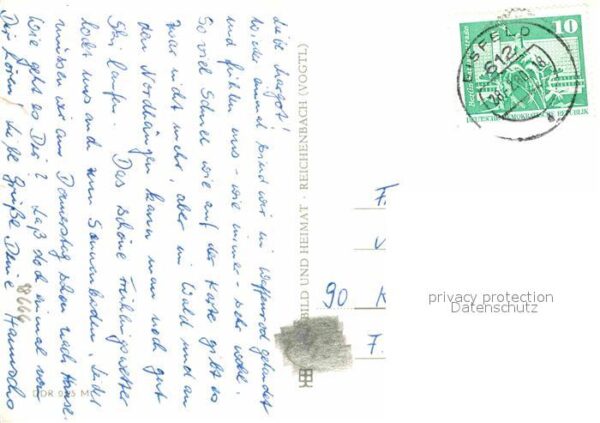 Liebe Margot!
Wieder einmal sind wir in Waffenrod gelandet
und fühlen uns - wie immer - sehr wohl.
So viel Schnee wie auf der Karte gibt es
zwar nicht mehr, aber im Wald und an
den Nordhängen kann man noch gut
Ski laufen. Das schöne Frühlingswetter
lockt uns auch zum Sonnenbaden. Leider
müssen wir am Donnerstag schon nach Hause.
Wie geht es Dir? Laß doch einmal von
Dir hören, liebe Grüße Deine
DDR M
BILD UND HEIMAT · REICHENBACH (VOGTL)
EISFELD
612
10
Berlin
DEUTSCHE DEMOKRATISCHE REPUBLIK
F.
V
90 K
F.
privacy protection
Datenschutz